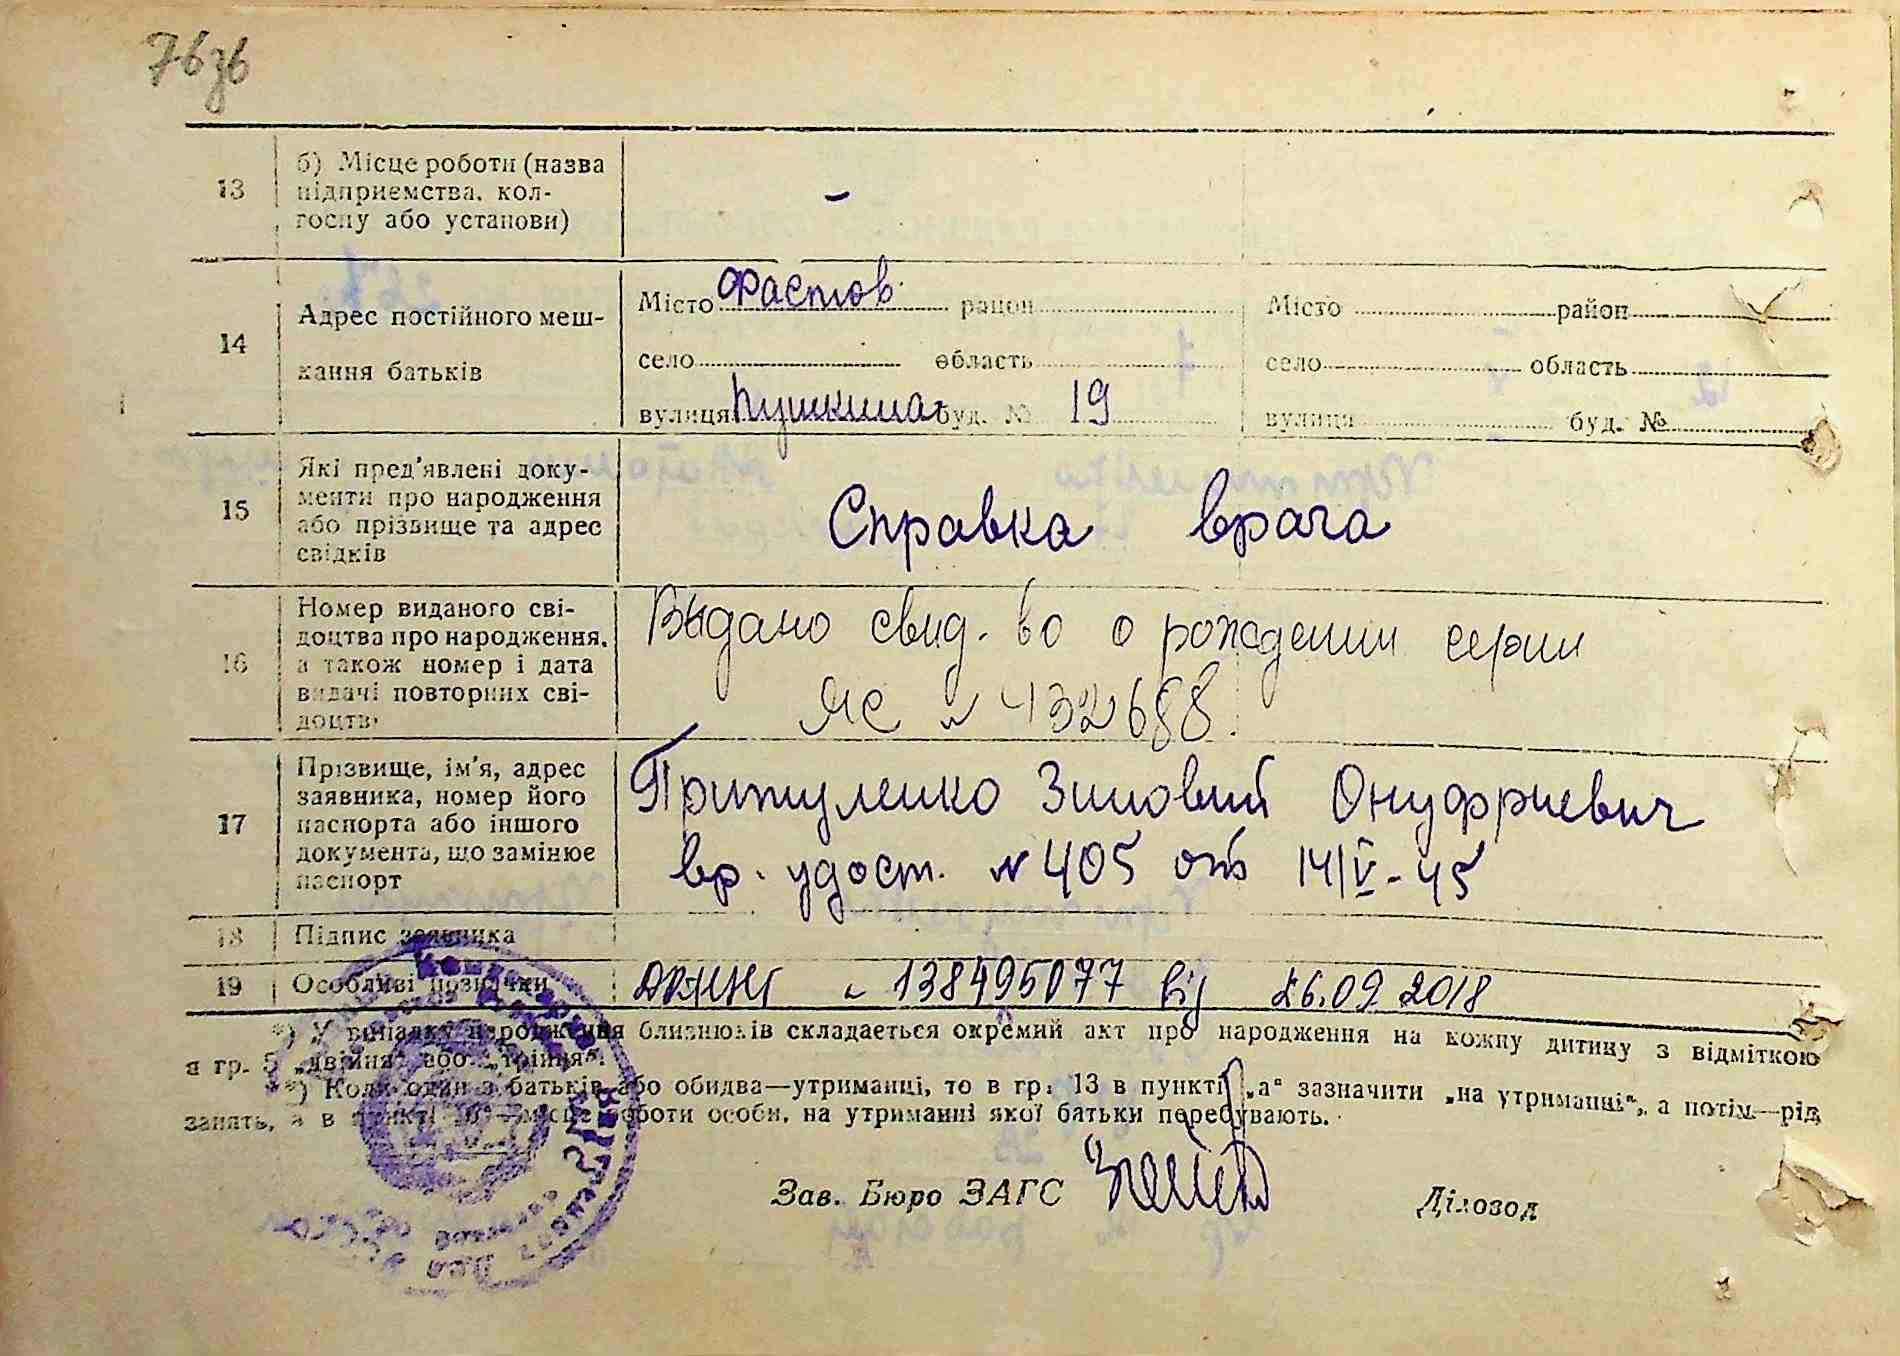 76зв
13
б) Місце роботи (назва
підприємства, кол-
госпу або установи)
-
14
Адрес постійного меш-
кання батьків
Місто Фастов район Місто район
село область село область
вулиця Пушкина буд. № 19 вулиця буд. №
15
Які пред'явлені доку-
менти про народження
або прізвище та адрес
свідків
Справка врача
16
Номер виданого сві-
доцтва про народження,
а також номер і дата
видачі повторних сві-
доцтв
Выдано свид-во о рождении серии
ЯС № 432688.
17
Прізвище, ім'я, адрес
заявника, номер його
паспорта або іншого
документа, що замінює
паспорт
Притуленко Зиновий Онуфриевич
вр. удост. № 405 от 14/V-45
18
Підпис заявника
19
Особливі позначки
№ 138495077 від 26.09.2018
*) У випадку народження близнюків складається окремий акт про народження на кожну дитину з відміткою
в гр. 5 „двійня" або „трійня".
**) Коли один з батьків або обидва—утриманці, то в гр. 13 в пункті „а" зазначити „на утриманні", а потім—рід
занять, а в пункті „б"—місце роботи особи, на утриманні якої батьки перебувають.
Зав. Бюро ЗАГС
Діловод